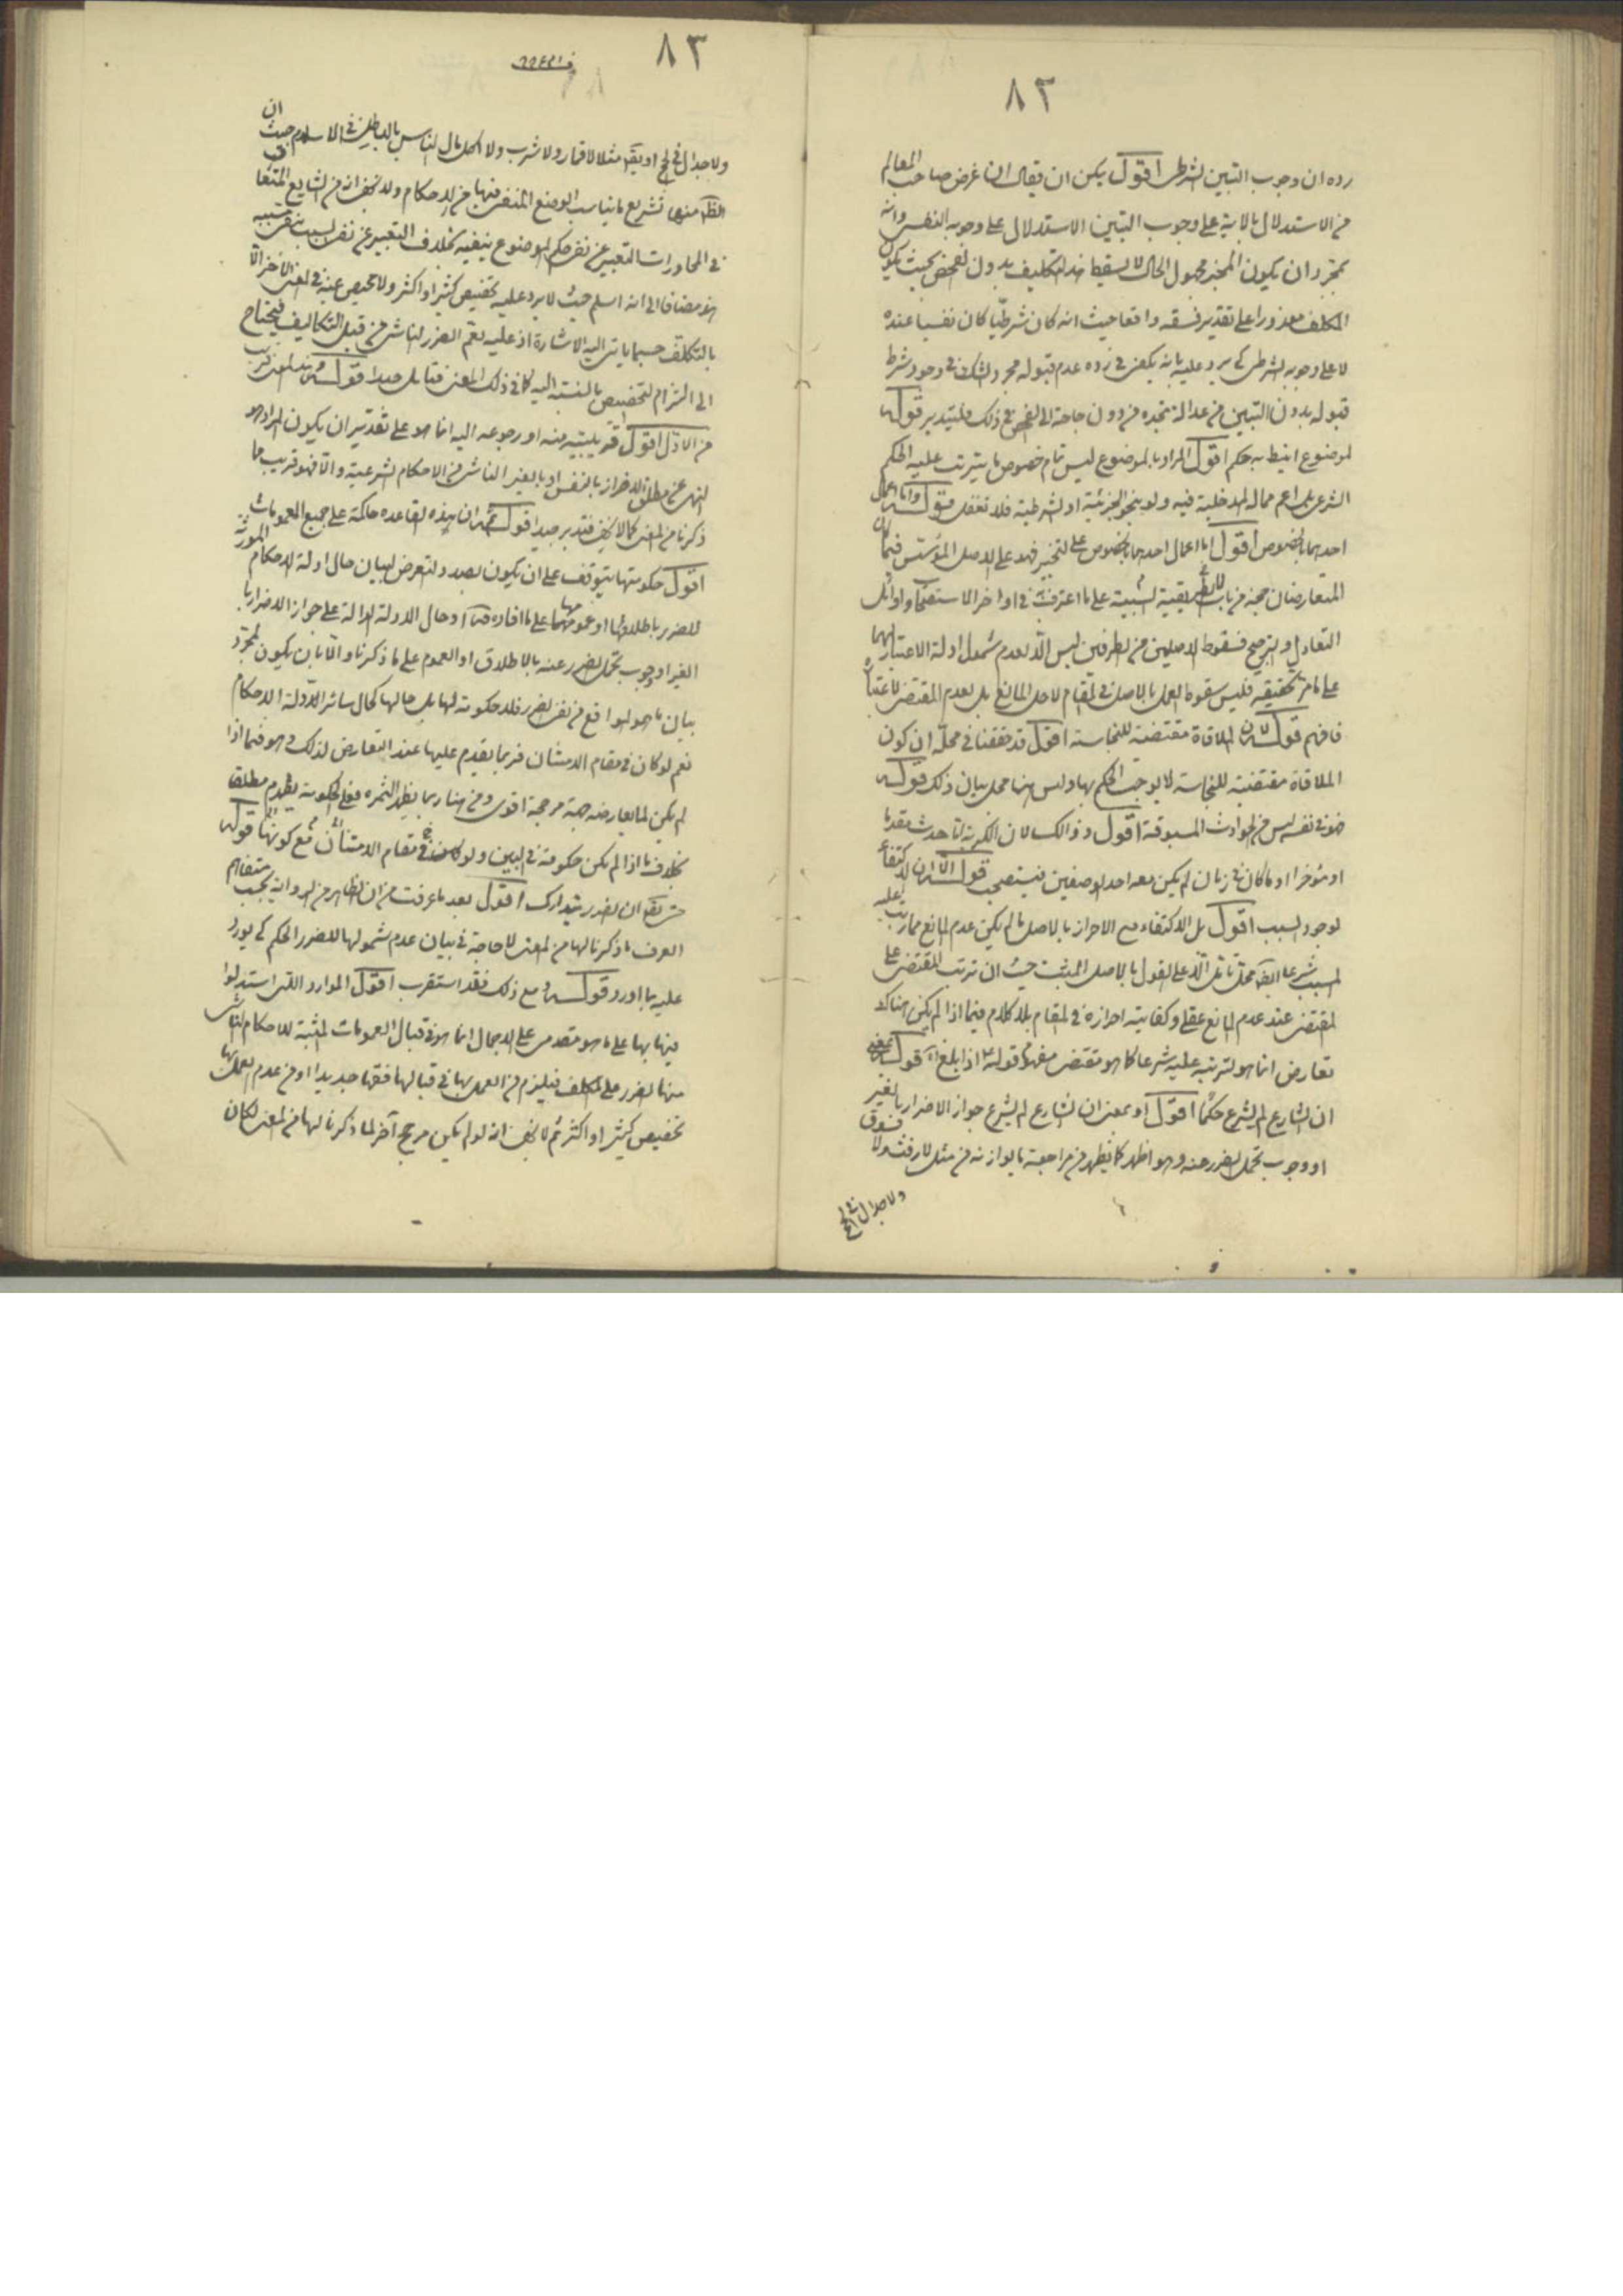 ٨٢
رده ان وجوب التبين لشرطى اقول يمكن ان يقال ان غرض صاحب المعالم
من الاستدلال بالاية على وجوب التبين الاستدلال على وجوبه النفسى وانه
بمجرد ان يكون المخبر مجهول الحال لا يسقط التكليف بدون الفحص بحيث يكون
المكلف معذورا على تقدير فسقه واقعا حيث انه كان شرطيا كان نفسيا عنده
لا على وجوبه الشرطى كى يرد عليه بانه يكفى فى رده عدم قبوله مجرد الشك فى وجود شرط
قبوله بدون التبين من عدالة مخبره من دون حاجة الى الفحص فى ذلك فليتدبر قوله
لموضوع انيط به حكم اقول المراد بالموضوع ليس تمام خصوص ما يترتب عليه الحكم
الشرعى بل اعم مما له المدخلية فيه ولو بنحو الجزئية او الشرطية فلا تغفل قوله واما اعمال
احدهما بالخصوص اقول اما اعمال احدهما بالخصوص على التخيير فهو على الاصل المؤسس فيما كان
المتعارضان حجة من باب الطريقية لا السببية على ما اعترف فى اواخر الاستصحاب واوائل
التعادل والترجيح فسقوط الاصلين من الطرفين ليس الا لعدم شمول ادلة الاعتبار لهما
على ما مر تحقيقه فليس سقوط العمل بالاصل فى المقام لاجل المانع بل لعدم المقتضى لاعتباره
فافهم قوله لان الملاقاة مقتضية للنجاسة اقول قد حققنا فى محله ان كون
الملاقاة مقتضية للنجاسة لا يوجب الحكم بها وليس هنا محل بيان ذلك قوله
هو فى نفسه ليس من الحوادث المسبوقة اقول وذلك لان الكرية انما حدث مقدما
او مؤخرا او ما كان فى زمان لم يكن معه احد الوصفين فيستصحب قوله الا ان الاكتفاء
لوجود السبب اقول بل الاكتفاء مع الاحراز بالاصل ما لم يكن عدم المانع مما رتب عليه
المسبب شرعا ايضا محل تامل الا على القول بالاصل المثبت حيث ان ترتب المقتضى على
المقتضى عند عدم المانع عقلى وكفاية احرازه فى المقام بلا كلام فيما اذا لم يكن هناك
تعارض انما هو لترتبه عليه شرعا كما هو مقتضى مفهوم قوله ع اذا بلغ الخ قوله بمعنى
ان الشارع لم يشرع حكما اقول او بمعنى ان الشارع لم يشرع جواز الاضرار بالغير
او وجوب تحمل الضرر عنه وهو اظهر كما يظهر من مراجعة ما يوازنه من مثل لا رفث ولا فسوق
ولا جدال فى الحج
٨٣
ولا جدال فى الحج او يقال مثلا لا قمار ولا شرب ولا اكل مال الناس بالباطل فى الاسلام حيث ان
الظاهر منها تشريع ما يناسب الموضع المنفى فيها من الاحكام ولا يخفى انه من الشايع المتعارف
فى المحاورات التعبير عن نفى حكم الموضوع بنفيه بخلاف التعبير عن نفى السبب بنفى مسببه
هذا مضافا الى انه اسلم حيث لا يرد عليه تخصيص كثير او اكثر ولا محيص عنه فى المعنى الاخر الا
بالتكلف حسبما ياتى اليه الاشارة اذ عليه يعم الضرر الناشى من قبل التكاليف فيحتاج
الى التزام التخصيص بالنسبة اليه كما فى ذلك المعنى فتامل جيدا قوله هذا المعنى قريب
من الاول اقول قربه منه او رجوعه اليه انما هو على تقدير ان يكون المراد هو
النهى عن مطلق الاضرار بالنفس او بالغير الناشى من الاحكام الشرعية والا فهو قريب مما
ذكرنا من المعنى كما لا يخفى فتدبر جيدا قوله ثم ان هذه القاعدة حاكمة على جميع العمومات
اقول حكومتها يتوقف على ان يكون بصدد التعرض لبيان حال ادلة الاحكام المورثة
للضرر باطلاقها او عمومها على ما افاده قده او حال الادلة الدالة على جواز الاضرار با
لغير او وجوب تحمل الضرر عنه بالاطلاق او العموم على ما ذكرنا والا بان يكون لمجرد
بيان ما هو الواقع من نفى الضرر فلا حكومة لها بل حالها كحال سائر ادلة الاحكام
نعم لو كان فى مقام الامتنان فربما يقدم عليها عند التعارض لذلك وهو فيما اذا
لم يكن لما يعارضه جهة مرجحة اقوى ومن هنا ربما يظهر الثمرة فعلى الحكومة يقدم مطلقا
بخلاف ما اذا لم يكن حكومة فى البين ولو كان فى مقام الامتنان مع كونها قوله
حتى يقال ان الضرر يتدارك اقول بعد ما عرفت من ان الظاهر من الرواية بحسب متفاهم
العرف ما ذكرنا لها من المعنى لا حاجة فى بيان عدم شمولها للضرر الحكم كى يورد
عليه بما اورد قوله ومع ذلك فقد استقرب اقول الموارد التى استدلوا
فيها بها على ما هو مقدمى على الاجمال انما هو فى قبال العمومات المثبتة للاحكام الناشى
منها الضرر على المكلف فيلزم من العمل بها فى قبالها فقها جديدا او من عدم العمل بها
تخصيص كثير او اكثر ثم لا يخفى انه لو لم يكن مرجح آخر لما ذكرنا لها من المعنى لكان